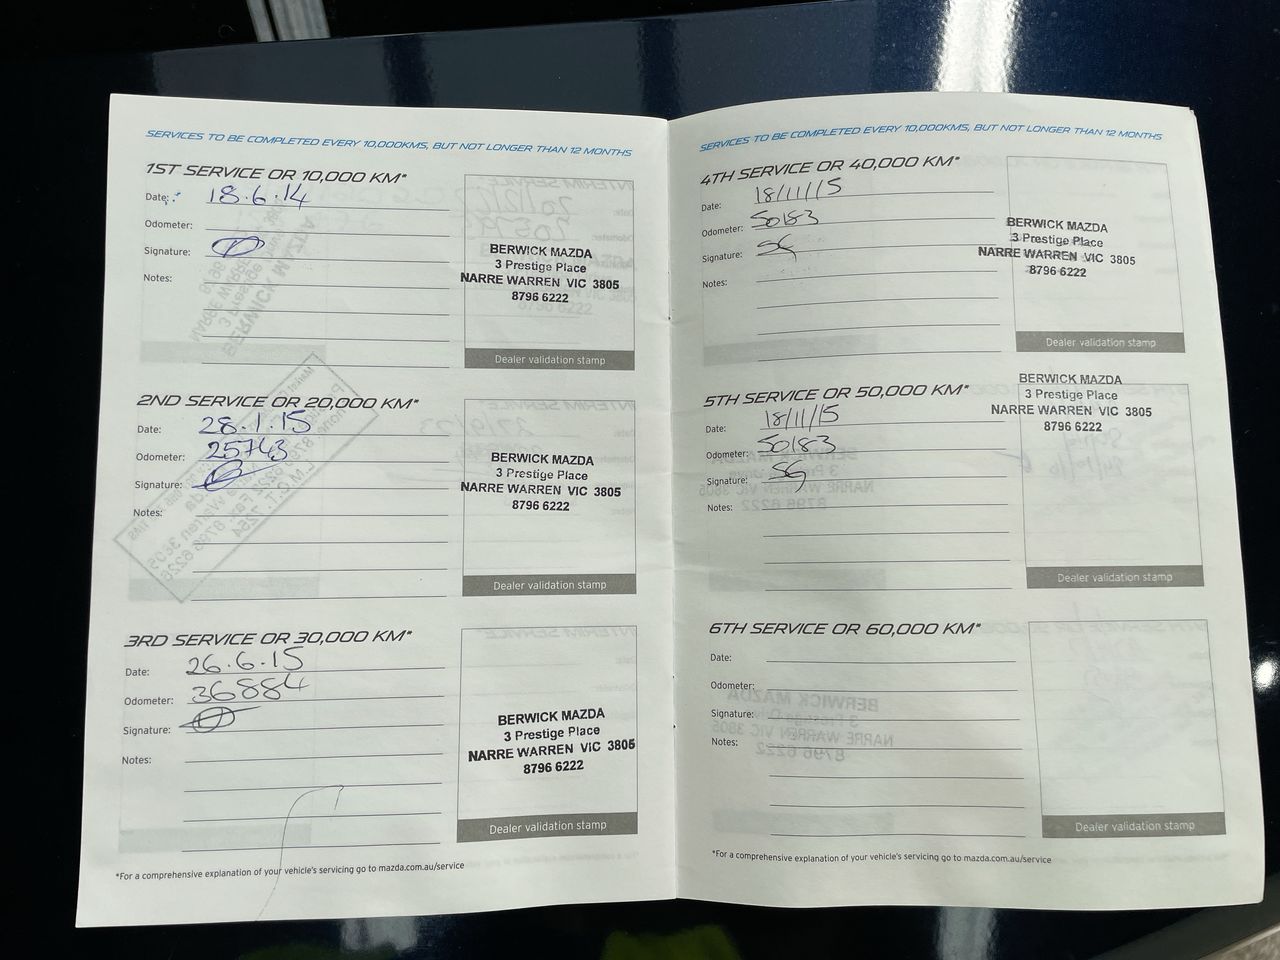 SERVICES TO BE COMPLETED EVERY 10,000KMS, BUT NOT LONGER THAN 12 MONTHS
1ST SERVICE OR 10,000 KM*
Date: 18.6.14
Odometer:
Signature:
Notes:
BERWICK MAZDA
3 Prestige Place
NARRE WARREN VIC 3805
8796 6222
Dealer validation stamp
2ND SERVICE OR 20,000 KM*
Date: 28.1.15
Odometer: 25743
Signature:
Notes:
BERWICK MAZDA
3 Prestige Place
NARRE WARREN VIC 3805
8796 6222
Dealer validation stamp
3RD SERVICE OR 30,000 KM*
Date: 26.6.15
Odometer: 36884
Signature:
Notes:
BERWICK MAZDA
3 Prestige Place
NARRE WARREN VIC 3805
8796 6222
Dealer validation stamp
*For a comprehensive explanation of your vehicle's servicing go to mazda.com.au/service
SERVICES TO BE COMPLETED EVERY 10,000KMS, BUT NOT LONGER THAN 12 MONTHS
4TH SERVICE OR 40,000 KM*
Date: 18/11/15
Odometer: 50183
Signature: SG
Notes:
BERWICK MAZDA
3 Prestige Place
NARRE WARREN VIC 3805
8796 6222
Dealer validation stamp
5TH SERVICE OR 50,000 KM*
Date: 18/11/15
Odometer: 50183
Signature: SG
Notes:
BERWICK MAZDA
3 Prestige Place
NARRE WARREN VIC 3805
8796 6222
Dealer validation stamp
6TH SERVICE OR 60,000 KM*
Date:
Odometer:
Signature:
Notes:
Dealer validation stamp
*For a comprehensive explanation of your vehicle's servicing go to mazda.com.au/service